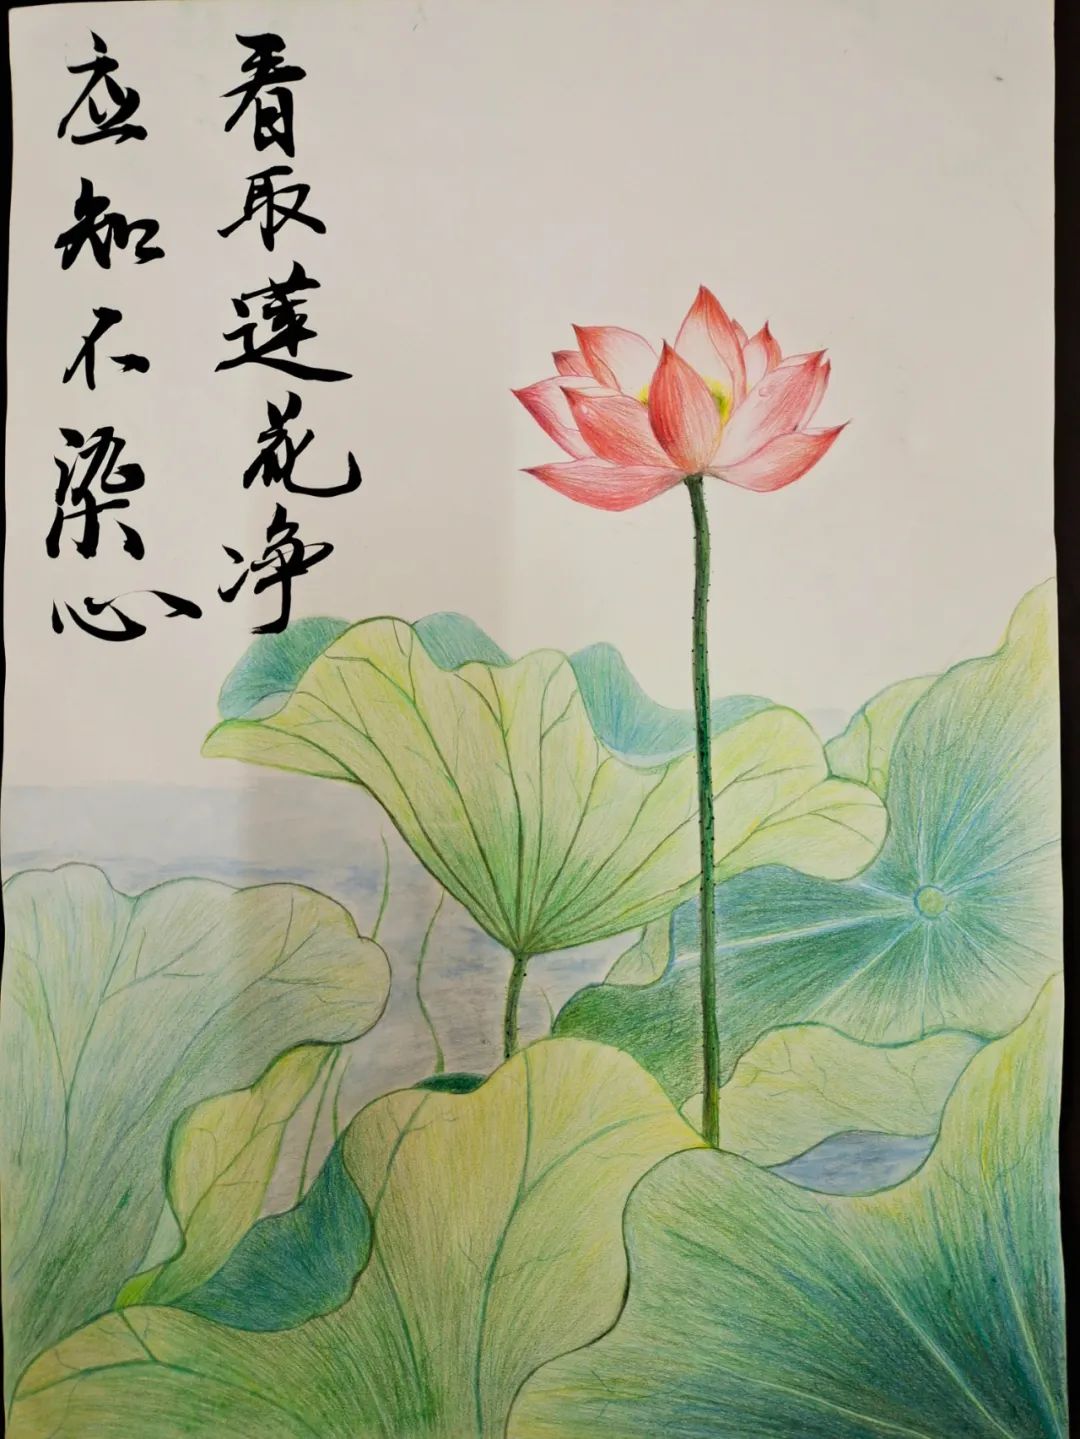 看取莲花净
应知不染心